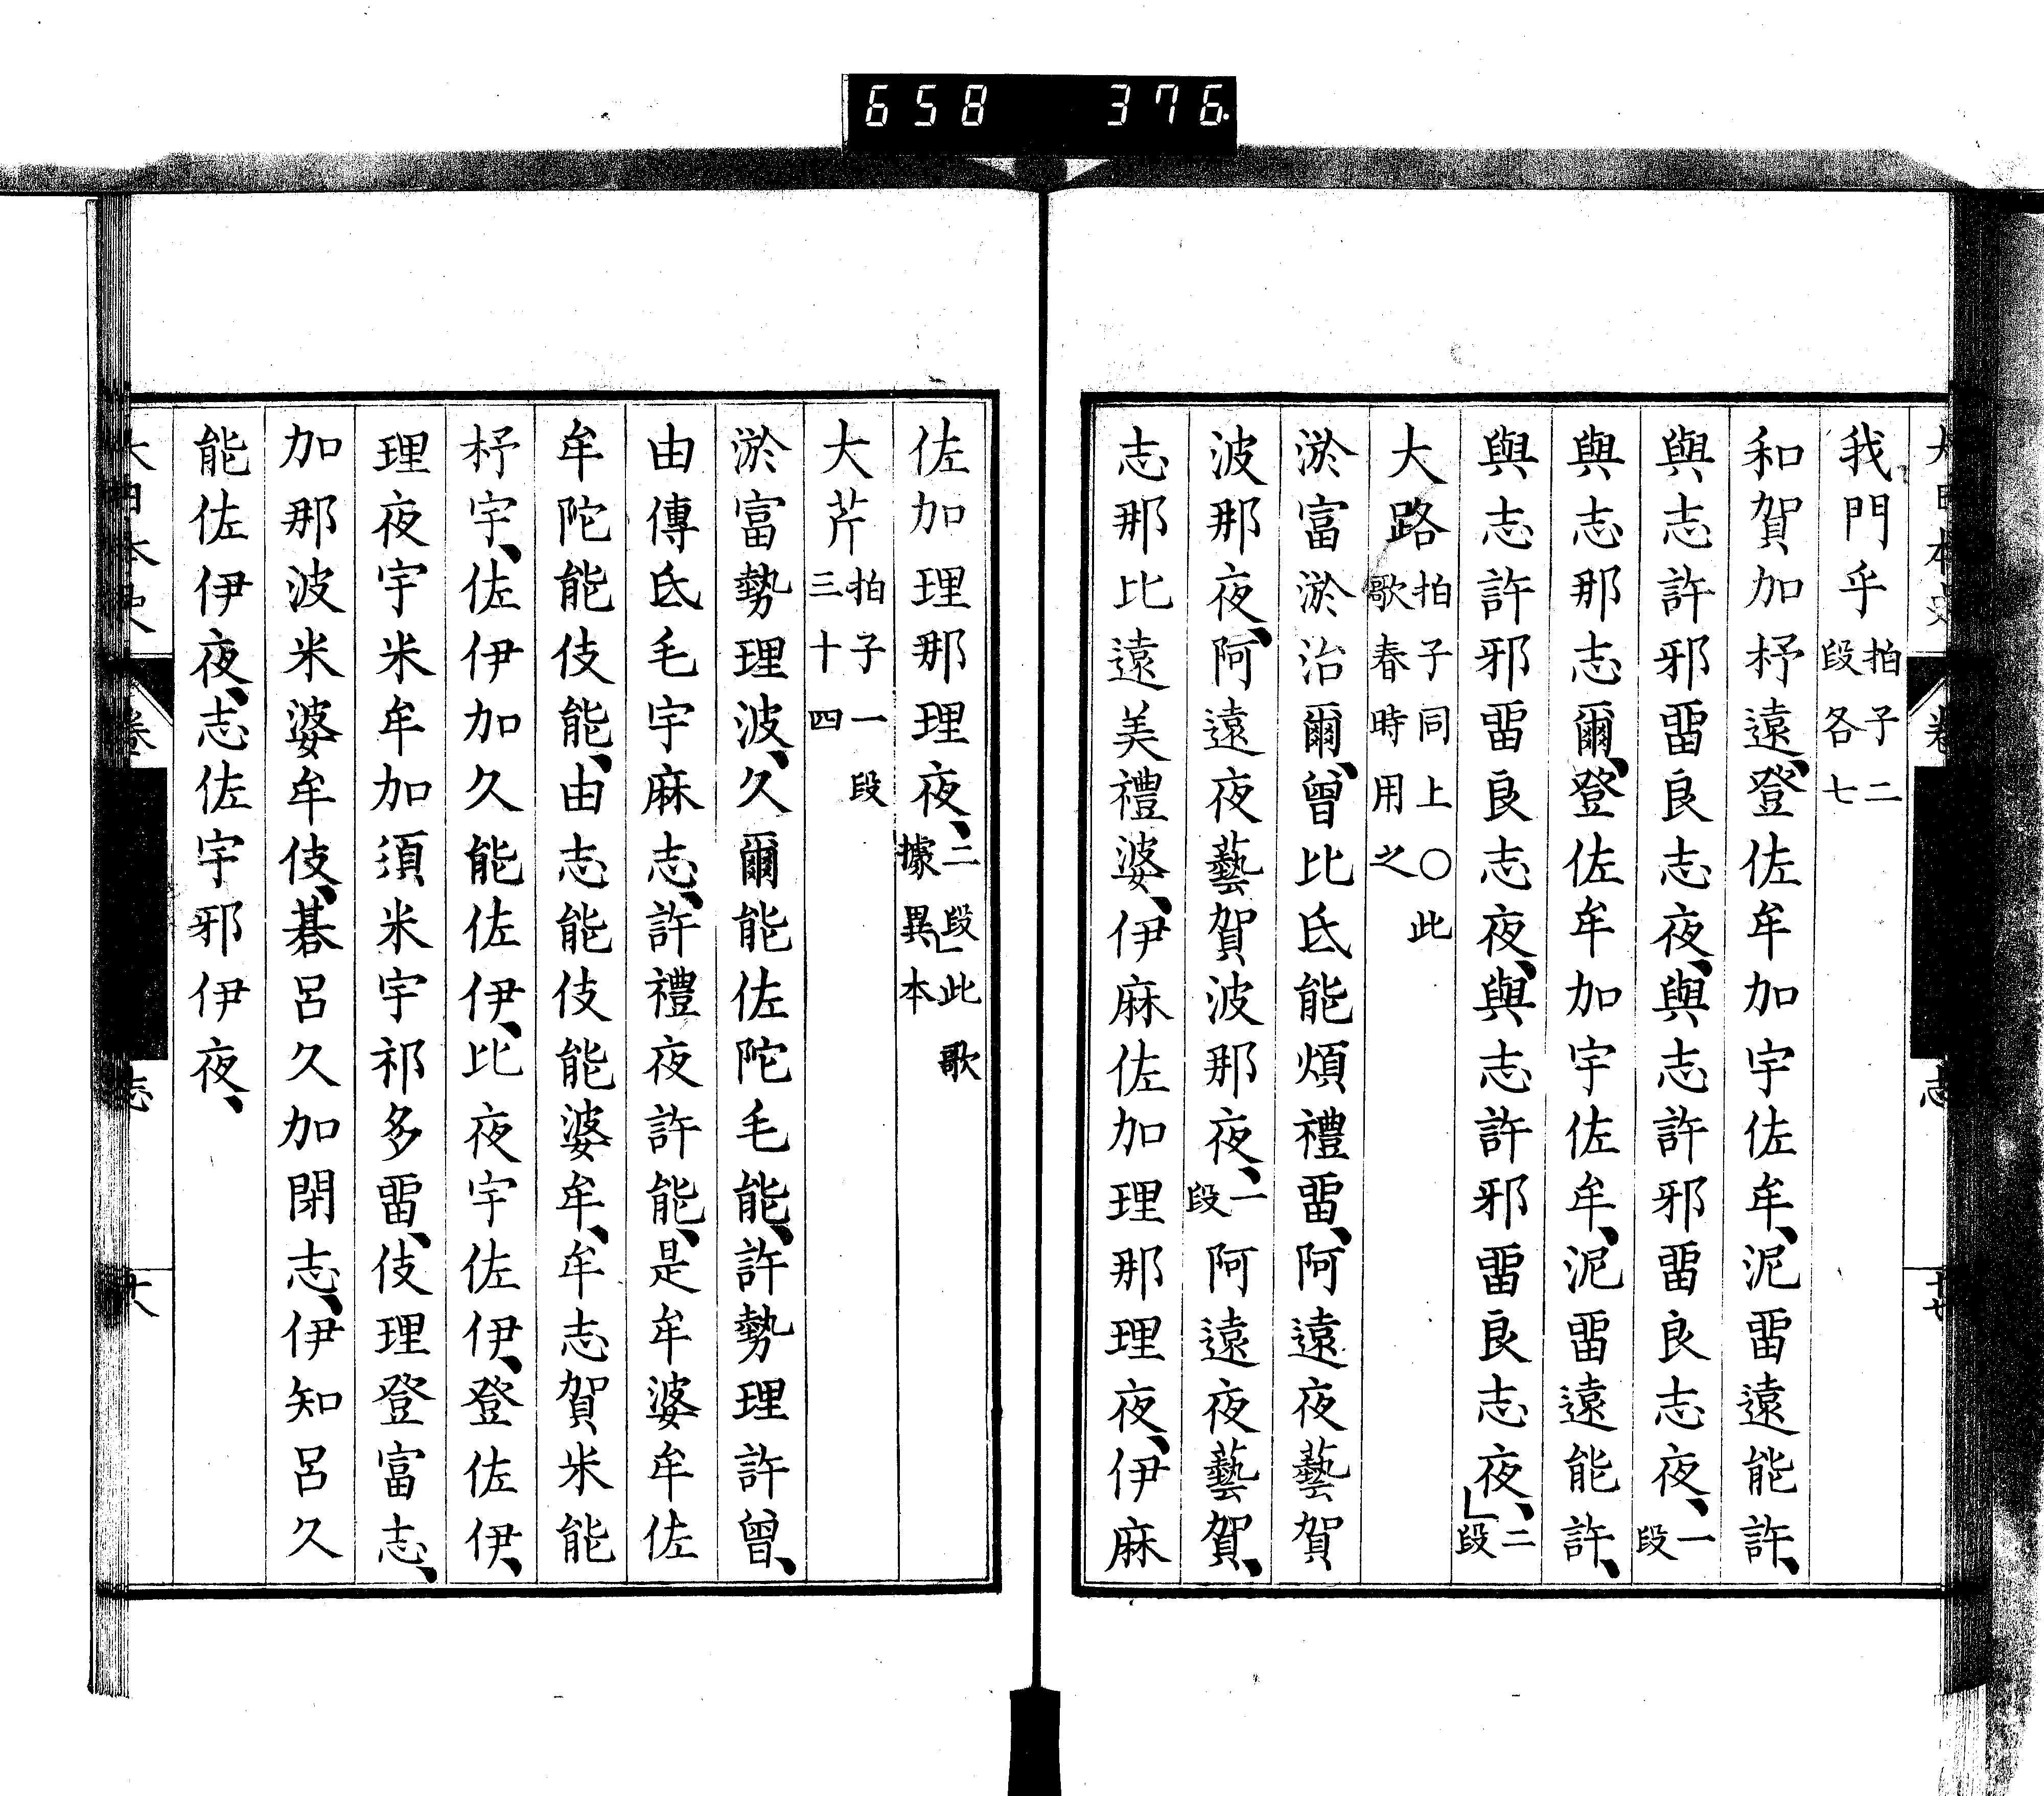 658 376
我門乎 拍子二段各七
和賀加杼遠、登佐牟加宇佐牟、泥畱遠能許、
與志許邪畱良志夜、與志許邪畱良志夜、一段
與志那志爾、登佐牟加宇佐牟、泥畱遠能許、
與志許邪畱良志夜、與志許邪畱良志夜、二段
大路 拍子同上〇此歌春時用之
淤富淤治爾、曾比氐能煩禮畱、阿遠夜藝賀
波那夜、阿遠夜藝賀波那夜、一段 阿遠夜藝賀、
志那比遠美禮婆、伊麻佐加理那理夜、伊麻
佐加理那理夜、二段 此歌據異本
大芹 拍子一段三十四
淤富勢理波、久爾能佐陀毛能、許勢理許曾、
由傳氐毛宇麻志、許禮夜許能、是牟婆牟佐
牟陀能伎能、由志能伎能婆牟、牟志賀米能
杼宇、佐伊加久能佐伊、比夜宇佐伊、登佐伊、
理夜宇米牟加須米宇祁多畱、伎理登富志、
加那波米婆牟伎、碁呂久加閇志、伊知呂久
能佐伊夜、志佐宇邪伊夜、
志